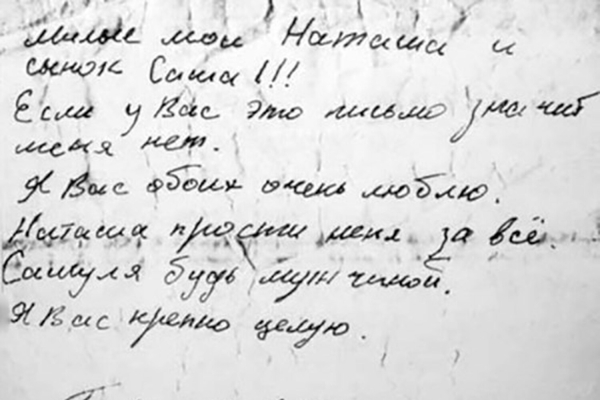 милые мои Наташа и
сынок Саша!!!
Если у Вас это письмо значит
меня нет.
Я Вас обоих очень люблю.
Наташа прости меня за всё.
Сашуля будь мужчиной.
Я Вас крепко целую.